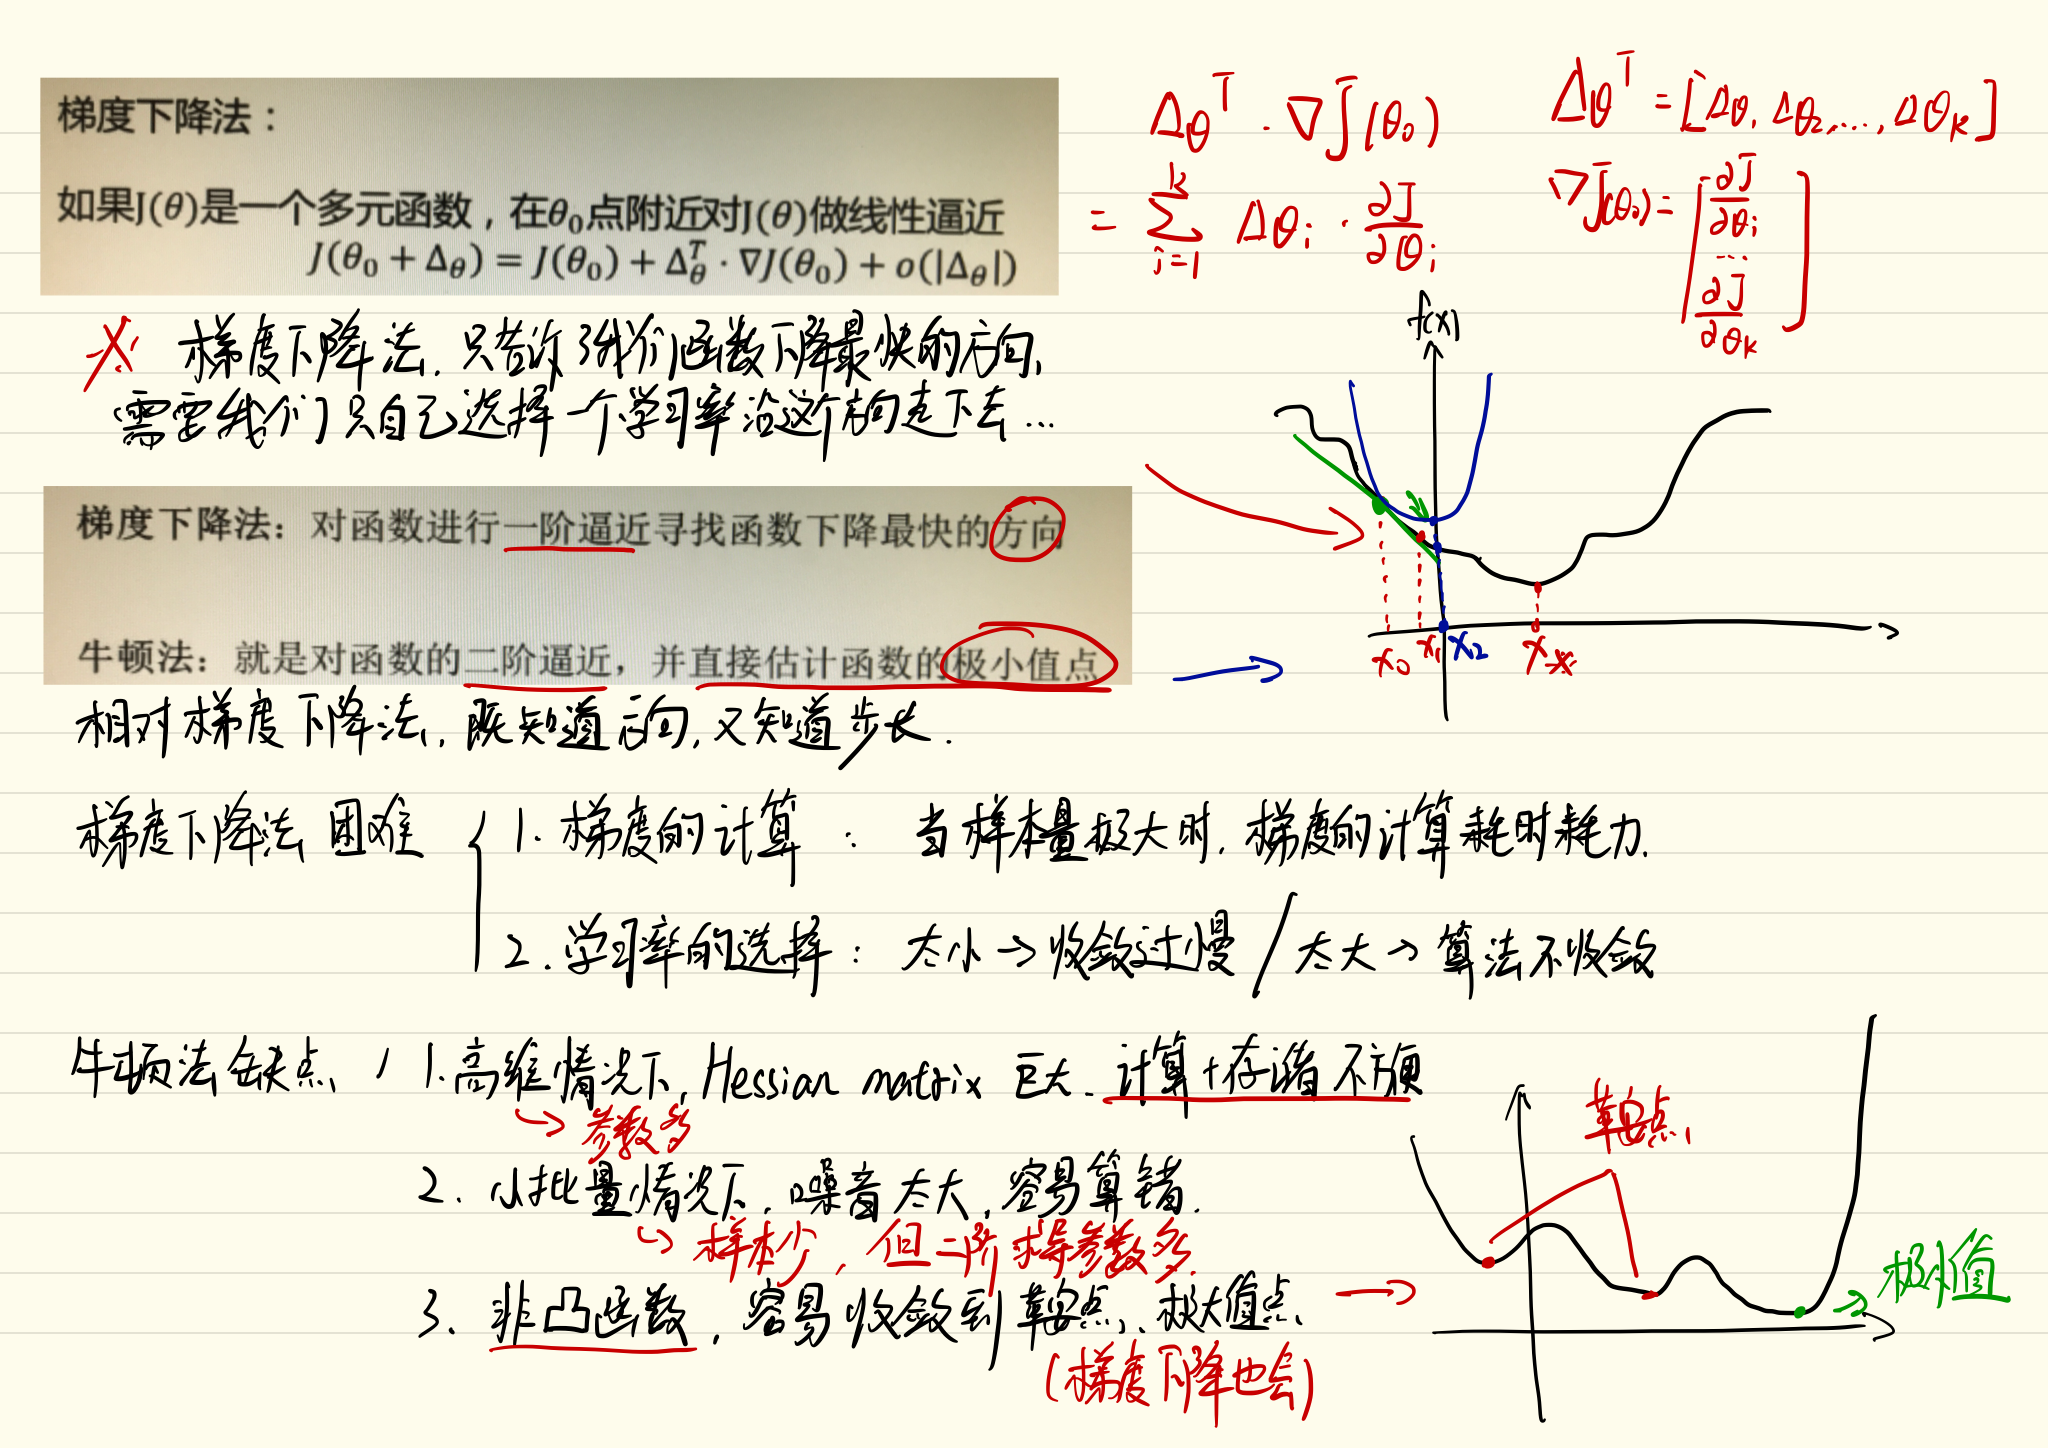 梯度下降法：
如果J(θ)是一个多元函数，在θ₀点附近对J(θ)做线性逼近
J(θ₀ + Δ_θ) = J(θ₀) + Δ_θ^T · ∇J(θ₀) + o(|Δ_θ|)
Δθ^T · ∇J(θ₀)
= Σ_{i=1}^{k} Δθᵢ · ∂J/∂θᵢ
Δθ^T = [Δθ₁ Δθ₂, ..., Δθ_k]
∇J(θ₀) = [∂J/∂θᵢ ... ∂J/∂θ_k]
梯度下降法，只告诉了我们函数下降最快的方向，
需要我们只自己选择一个学习率沿这个方向走下去...
f(x)
x₀ x₁ x₂ x*
梯度下降法：对函数进行一阶逼近寻找函数下降最快的方向
牛顿法：就是对函数的二阶逼近，并直接估计函数的极小值点
相对梯度下降法，既知道方向，又知道步长.
梯度下降法困难 { 1. 梯度的计算： 当样本量极大时，梯度的计算耗时耗力.
2. 学习率的选择：太小→收敛过慢 / 太大→算法不收敛
牛顿法缺点 1. 高维情况下，Hessian matrix 巨大. 计算+存储不方便
→ 参数多
2. 小批量情况下，噪音太大，容易算错.
→ 样本少，但二阶求导参数多.
3. 非凸函数，容易收敛到鞍点、极大值点 →
(梯度下降也会)
鞍点
→ 极小值